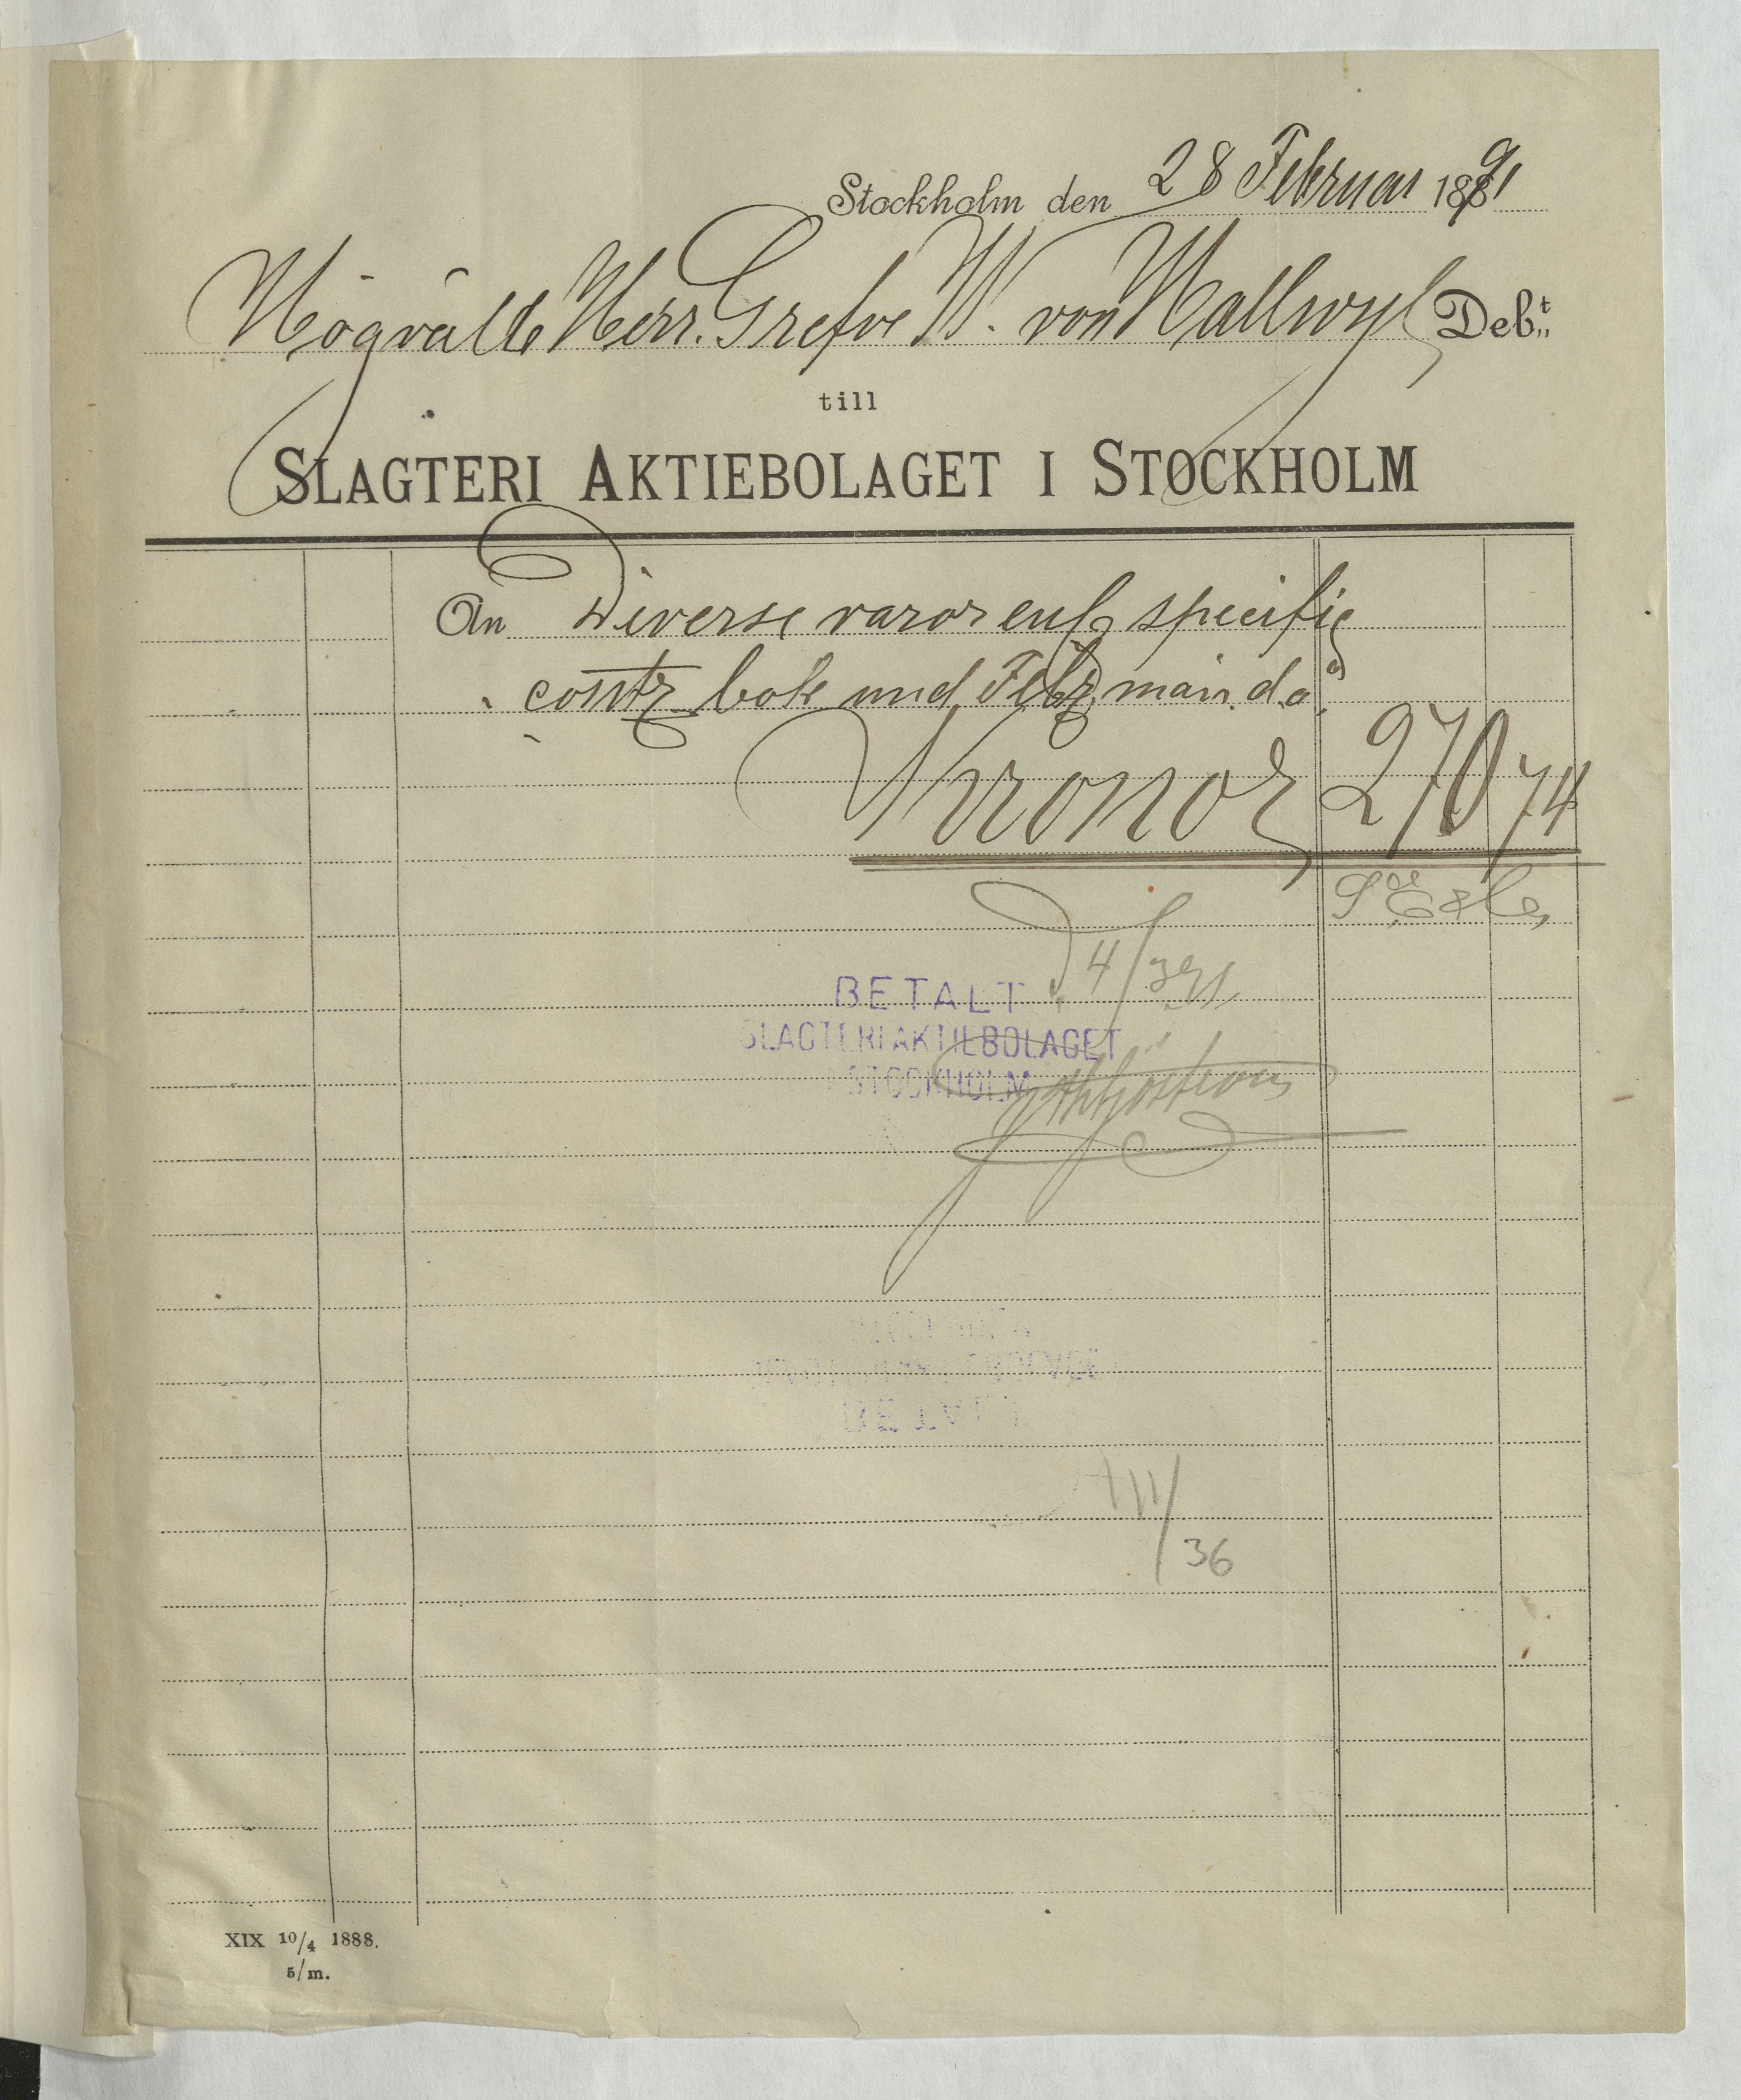 Stockholm den 28 Februari 1891
Högvälb Herr Grefve W. von Hallwyl Deb:t
till
SLAGTERI AKTIEBOLAGET I STOCKHOLM
An Diverse varor enl specifie
contr bok und Febr månad
Kronor 270 74
BETALT d 4/3 91
SLAGTERIAKTIEBOLAGET
STOCKHOLM
36
XIX 10/4 1888.
5/m.